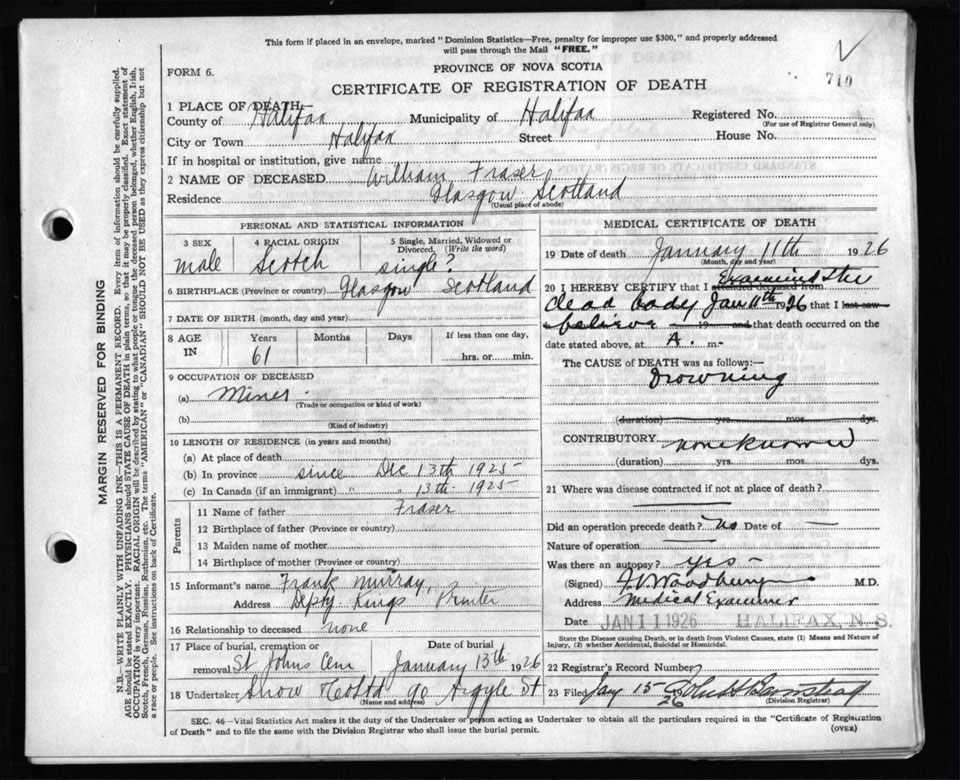 This form if placed in an envelope, marked "Dominion Statistics—Free, penalty for improper use $300," and properly addressed
will pass through the Mail "FREE."
710
FORM 6.
PROVINCE OF NOVA SCOTIA
CERTIFICATE OF REGISTRATION OF DEATH
1 PLACE OF DEATH—
County of Halifax Municipality of Halifax Registered No.
(For use of Registrar General only)
City or Town Halifax Street House No.
If in hospital or institution, give name
2 NAME OF DECEASED William Fraser
Residence Glasgow Scotland
(Usual place of abode)
PERSONAL AND STATISTICAL INFORMATION
3 SEX male
4 RACIAL ORIGIN Scotch
5 Single, Married, Widowed or Divorced, (Write the word) single?
6 BIRTHPLACE (Province or country) Glasgow Scotland
7 DATE OF BIRTH (month, day and year)
8 AGE IN Years 61 Months Days If less than one day, hrs. or min.
9 OCCUPATION OF DECEASED
(a) Miner
(Trade or occupation or kind of work)
(b)
(Kind of industry)
10 LENGTH OF RESIDENCE (in years and months)
(a) At place of death
(b) In province since Dec 13th 1925
(c) In Canada (if an immigrant) " " 13th 1925
Parents
11 Name of father Fraser
12 Birthplace of father (Province or country)
13 Maiden name of mother
14 Birthplace of mother (Province or country)
15 Informant's name Frank Murray
Address Depty Kings Printer
16 Relationship to deceased none
17 Place of burial, cremation or removal St Johns Cem
Date of burial January 13th 1926
18 Undertaker Snow & Co Ltd 90 Argyle St
(Name and address)
MEDICAL CERTIFICATE OF DEATH
19 Date of death January 11th 1926
(Month, day and year)
20 I HEREBY CERTIFY that I attended deceased from Examined the
dead body Jan 11th 1926 that I last saw
believe 19 and that death occurred on
date stated above, at A. m.
The CAUSE of DEATH was as follows:—
Drowning
(duration) yrs. mos. dys.
CONTRIBUTORY none known
(duration) yrs. mos. dys.
21 Where was disease contracted if not at place of death?
Did an operation precede death? No Date of —
Nature of operation
Was there an autopsy? Yes
(Signed) Woodbury M.D.
Address Medical Examiner
Date JAN 11 1926 HALIFAX, N.S.
State the Disease causing Death, or in death from Violent Causes, state (1) Means and Nature of Injury, (2) whether Accidental, Suicidal or Homicidal.
22 Registrar's Record Number
23 Filed Jany 15 1926 John H Barnstead
(Division Registrar)
SEC. 46—Vital Statistics Act makes it the duty of the Undertaker or person acting as Undertaker to obtain all the particulars required in the "Certificate of Registration
of Death" and to file the same with the Division Registrar who shall issue the burial permit.
(OVER)
MARGIN RESERVED FOR BINDING
N.B.—WRITE PLAINLY WITH UNFADING INK—THIS IS A PERMANENT RECORD. Every item of information should be carefully supplied.
AGE should be stated EXACTLY. PHYSICIANS should STATE CAUSE OF DEATH in plain terms, so that it may be properly classified. Exact statement of
OCCUPATION is very important. RACIAL ORIGIN will be described by stating to what people or tongue the deceased person belonged, whether English, Irish,
Scotch, French, German, Russian, Ruthenian, etc. The terms "AMERICAN" or "CANADIAN" SHOULD NOT BE USED as they express citizenship but not
a race or people. See instructions on back of Certificate.